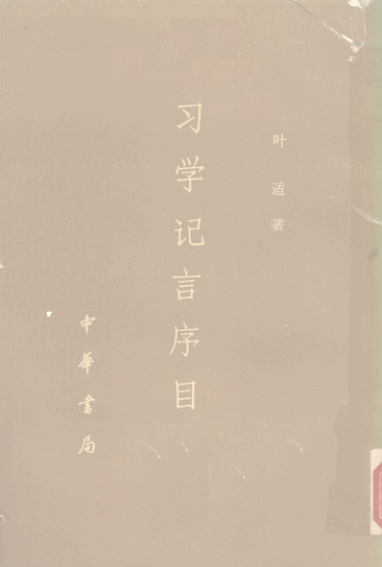 叶适著
习学记言序目
中华书局